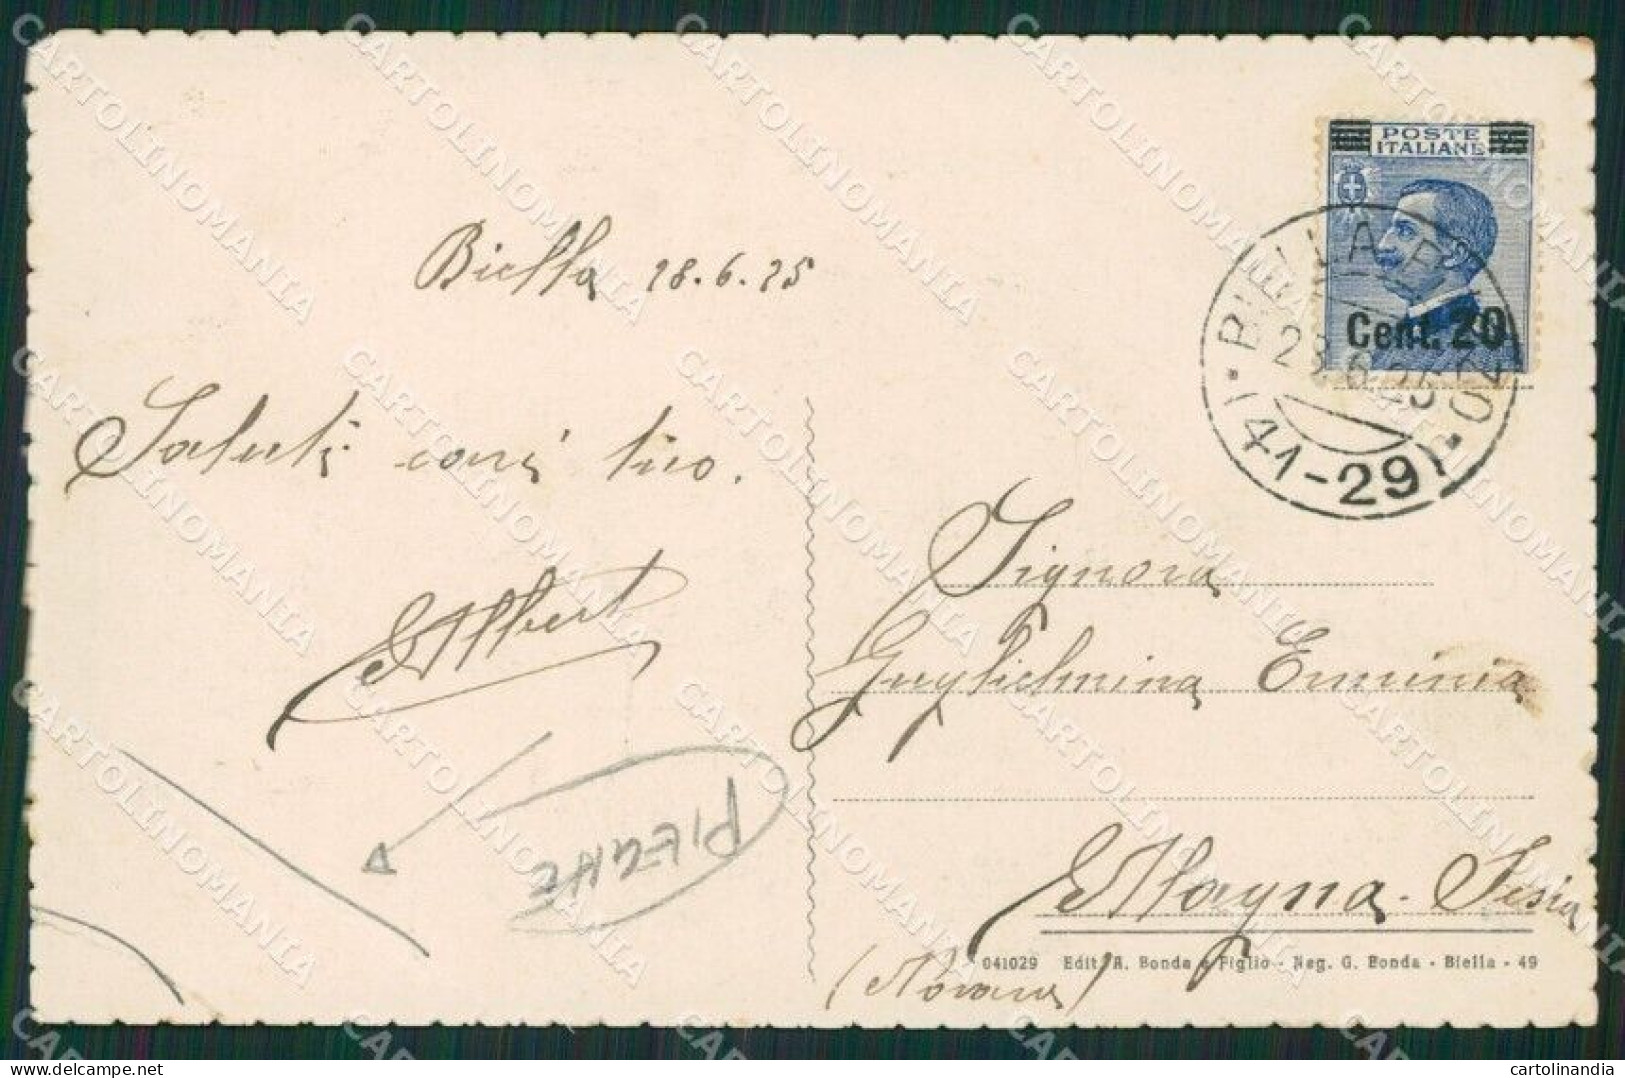 POSTE
ITALIANE
Cent. 20
41-29
Biella 28.6.25
Saluti cari tuo.
Albert
Signora
Guglielmina Erminia
Magna - Sesia
(Novara)
PIEGHE
041029 Edit. A. Bonda e Figlio - Neg. G. Bonda - Biella - 49
CARTOLINOMANIA
cartolinandia